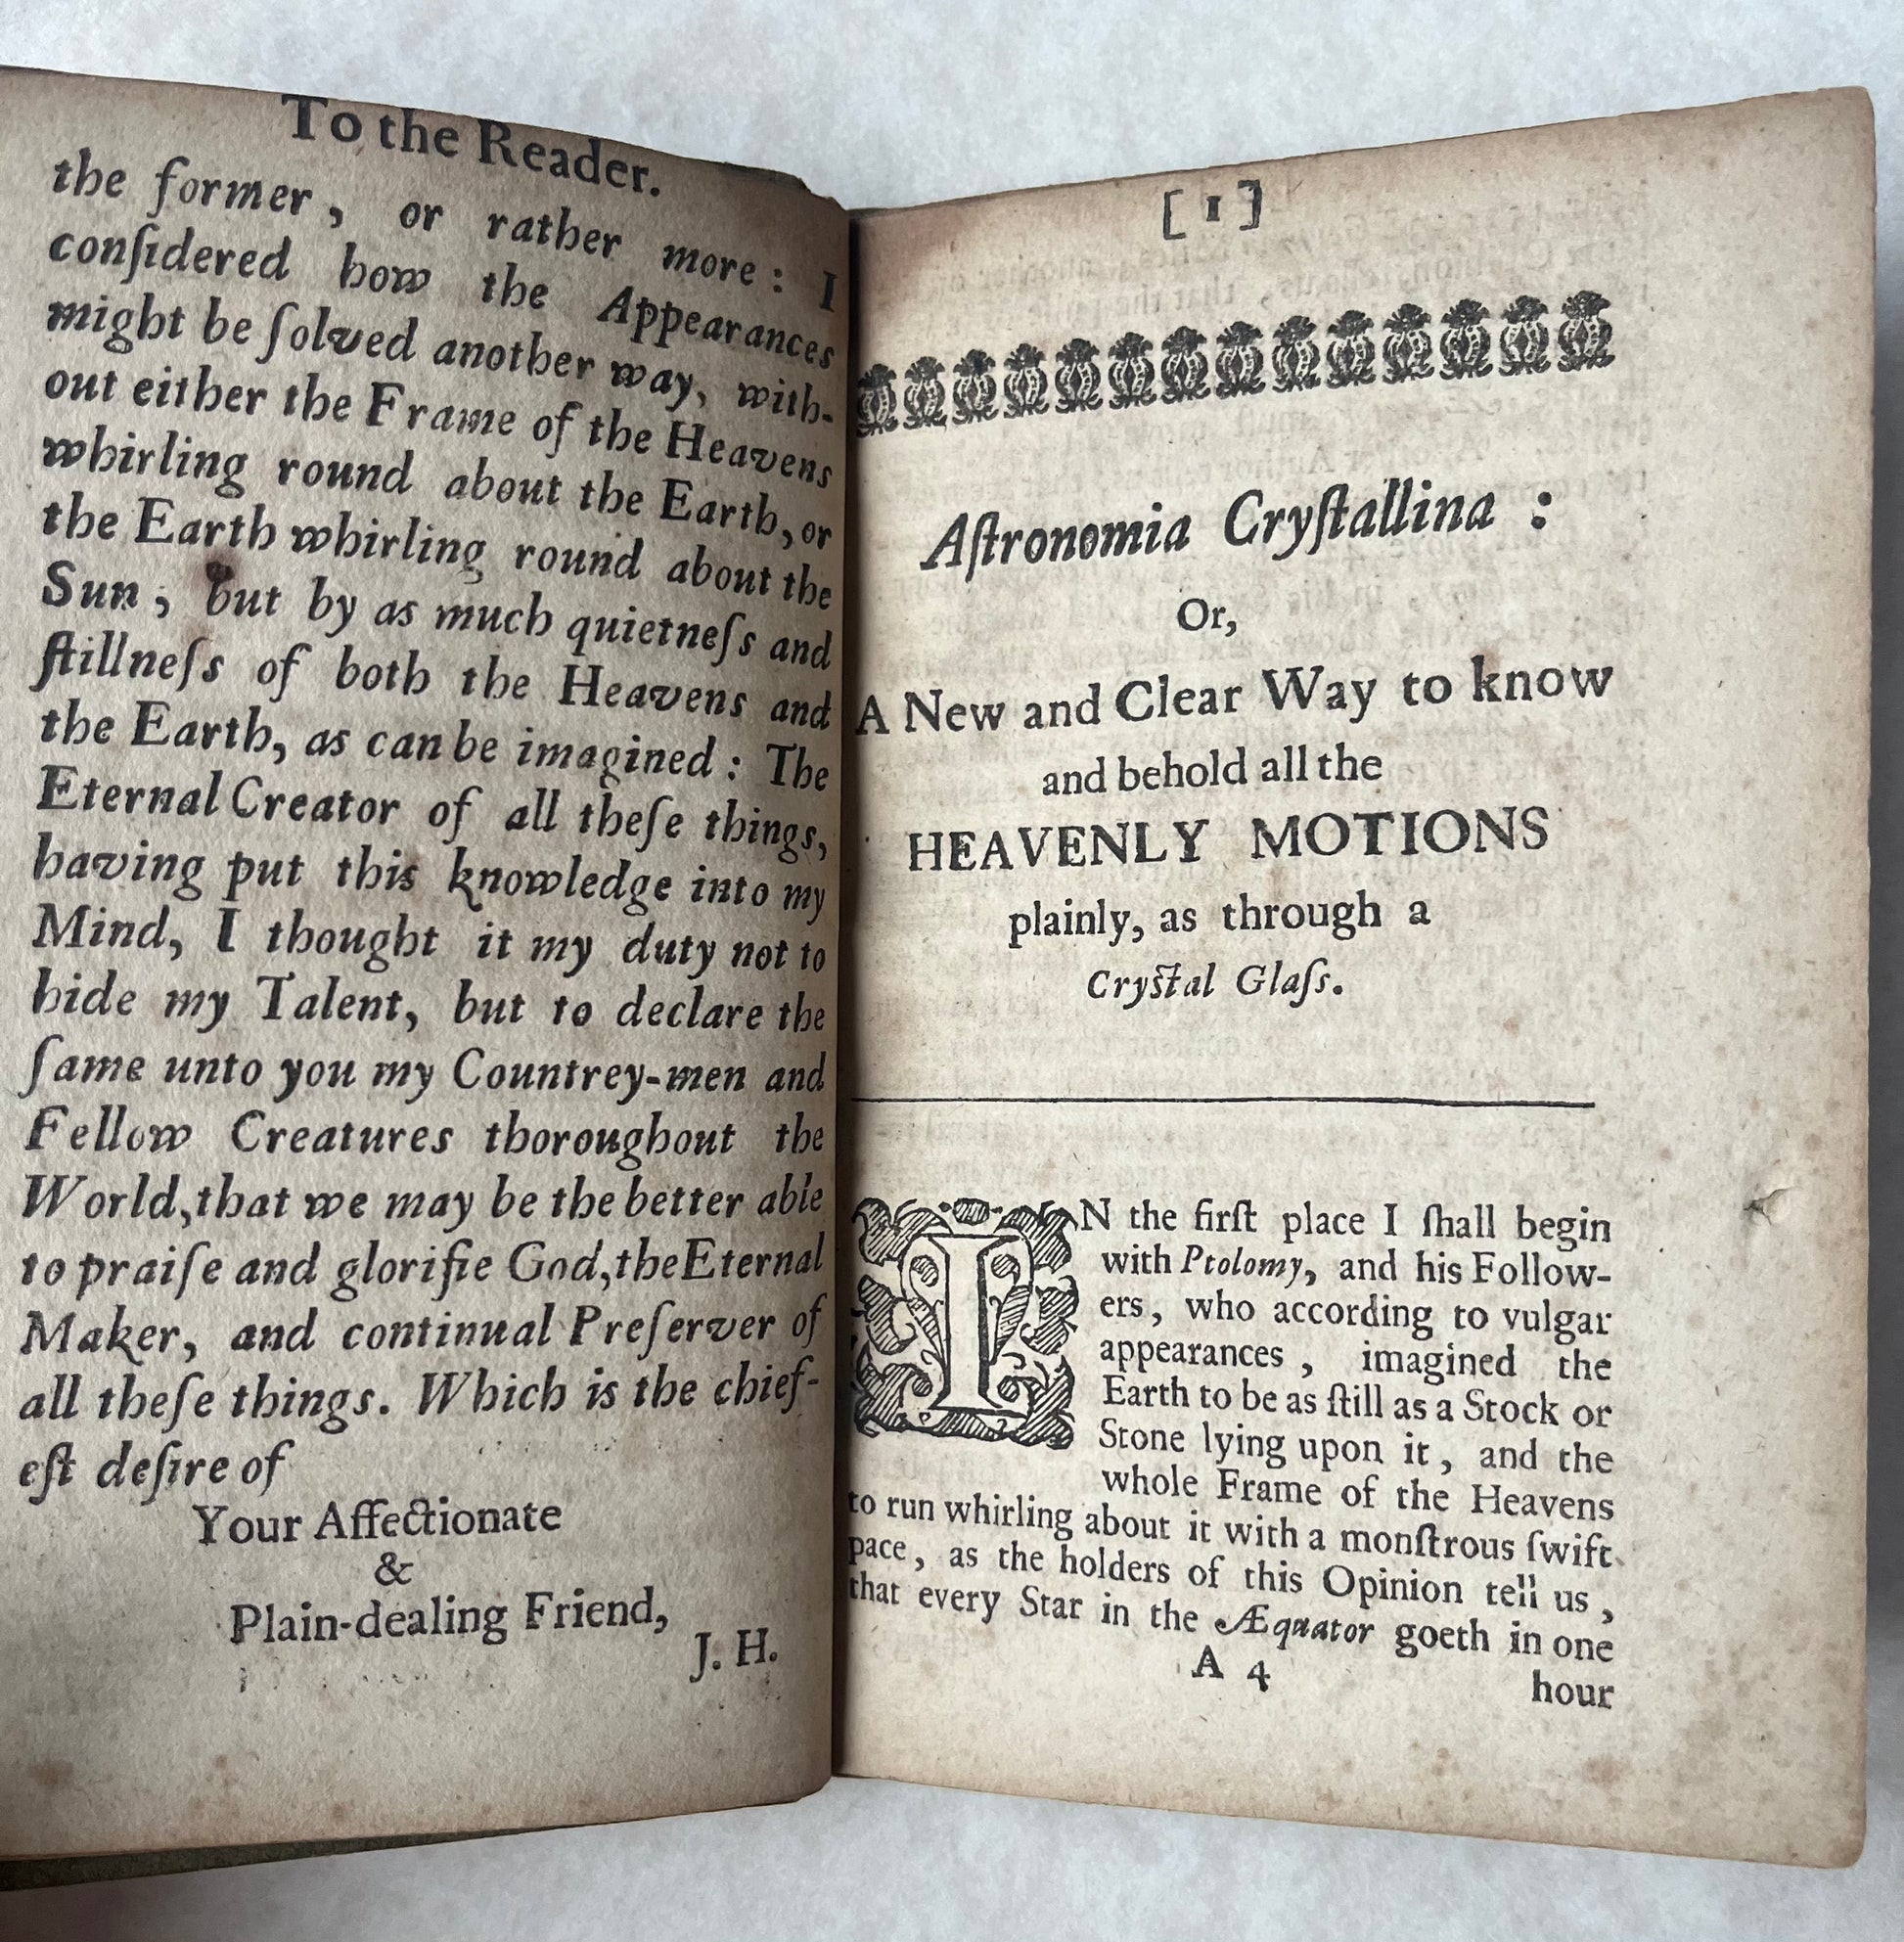 To the Reader.
the former, or rather more: I
conſidered how the Appearances
might be ſolved another way, with-
out either the Frame of the Heavens
whirling round about the Earth, or
the Earth whirling round about the
Sun, but by as much quietneſs and
ſtillneſs of both the Heavens and
the Earth, as can be imagined: The
Eternal Creator of all theſe things,
having put this knowledge into my
Mind, I thought it my duty not to
hide my Talent, but to declare the
ſame unto you my Countrey-men and
Fellow Creatures thoroughout the
World, that we may be the better able
to praiſe and glorifie God, the Eternal
Maker, and continual Preſerver of
all theſe things. Which is the chief-
eſt deſire of
Your Affectionate
&
Plain-dealing Friend,
J. H.
[ 1 ]
Aſtronomia Cryſtallina :
Or,
A New and Clear Way to know
and behold all the
HEAVENLY MOTIONS
plainly, as through a
Cryſtal Glaſs.
IN the firſt place I ſhall begin
with Ptolomy, and his Follow-
ers, who according to vulgar
appearances, imagined the
Earth to be as ſtill as a Stock or
Stone lying upon it, and the
whole Frame of the Heavens
to run whirling about it with a monſtrous ſwift
pace, as the holders of this Opinion tell us,
that every Star in the Æquator goeth in one
A 4
hour